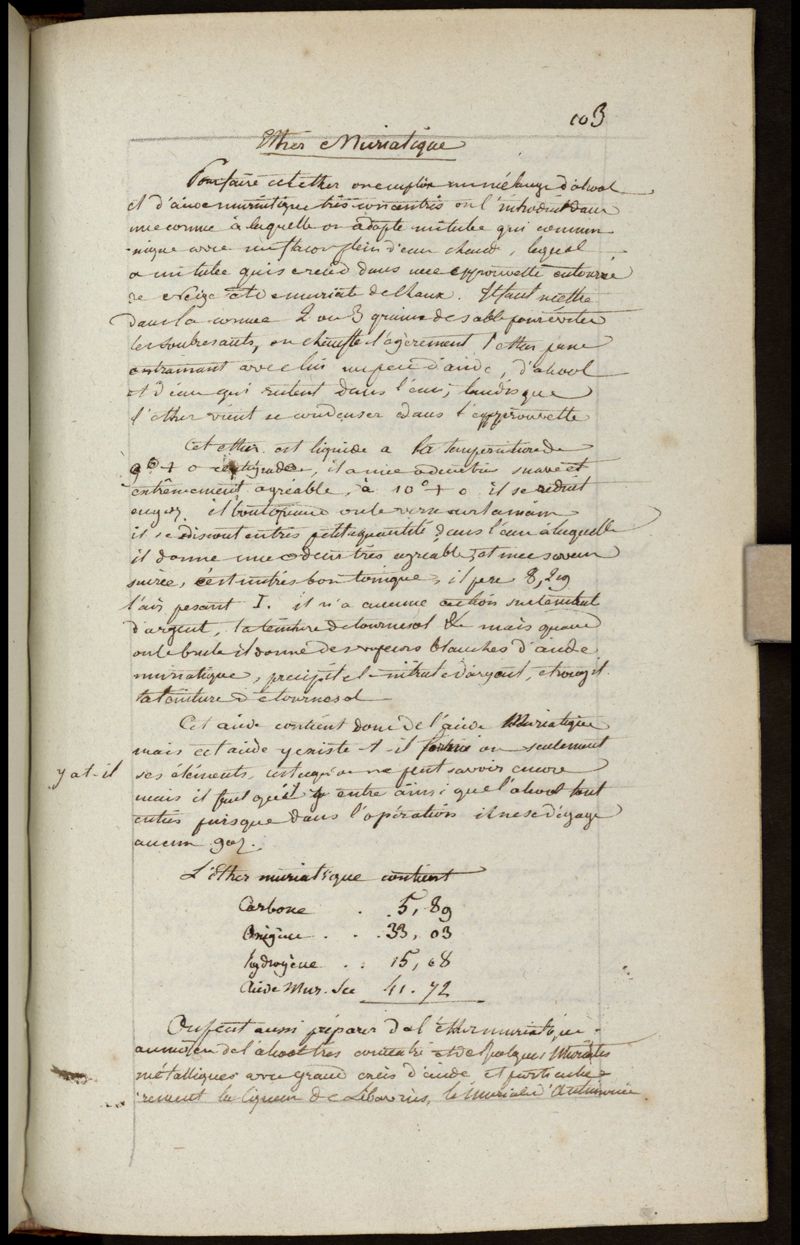 103
Ether Muriatique
Pour faire cet ether on emploie un mélange d'alcool
et d'acide muriatique très concentrés on l'introduit dans
une cornue à laquelle on adapte un tube qui commun-
-nique avec un flacon plein d'eau chaude, lequel
a un tube qui se rend dans une epprouvette entourré
de neige et de muriate de chaux. Il faut mettre
dans la cornue 2 ou 3 grains de sable pour eviter
les soubresauts, on chauffe légèrement l'ether passe
entrainant avec lui un peu d'acide, d'alcool
et d'eau qui restent dans l'eau, tandis que
l'ether vient se condenser dans l'epprouvette
Cet ether est liquide a la temperature de
9° + 0 centigrade, il a une odeur très suave et
extrêmement agréable, à 10° + 0 il se reduit
en gaz, il bout quand on le verse sur la main
il se dissout en très petite quantité dans l'eau à laquelle
il donne une odeur très agréable et une saveur
sucrée, c'est un très bon tonique, il pese 8,29
l'air pesant 1. il n'a aucune action sur le nitrate
d'argent, la teinture de tournesol &c mais quand
on le brule il donne des vapeurs blanches d'acide
muriatique, precipite le nitrate d'argent, et rougit
la teinture de tournesol
Cet acide contient donc de l'acide Muriatique
mais cet acide y existe-t-il formé ou seulement
y a t-il
ses éléments, c'est ce qu'on ne peut savoir encore
mais il faut qu'il y entre ainsi que l'alcool tout
entier puisque dans l'opération il ne se dégage
aucun gaz.
L'Ether muriatique contient
Carbone . 5,89
Oxigène . . 33,03
hydrogène . . 15,68
Acide Mur. Sec 41.72
On peut aussi préparer de l'éther muriatique
au moyen de l'alcool très concentré et de quelques Muriates
métalliques avec grand excès d'acide et particulie-
-rement la liqueur de Libavius, le muriate d'Antimoine